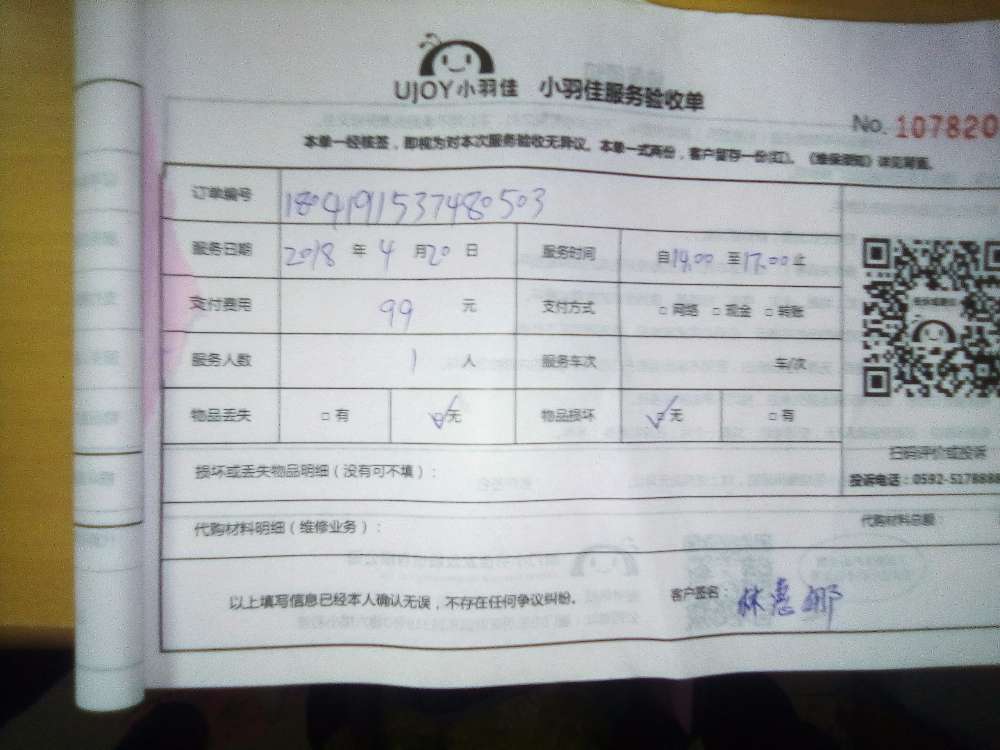 UJOY小羽佳 小羽佳服务验收单
No. 107820
本单一经核签，即视为对本次服务验收无异议。本单一式两份，客户留存一份(红)。《维保须知》详见背面。
订单编号 1804191537480503
服务日期 2018 年 4 月 20 日 服务时间 自14:00 至17:00止
支付费用 99 元 支付方式 □ 网络 □ 现金 □ 转账
服务人数 1 人 服务车次 车/次
物品丢失 □ 有 ☑无 物品损坏 ☑无 □ 有
扫码评价或投诉
损坏或丢失物品明细（没有可不填）：
投诉电话：0592-5178888
代购材料明细（维修业务）： 代购材料总额：
以上填写信息已经本人确认无误，不存在任何争议纠纷。 客户签名： 林惠娜